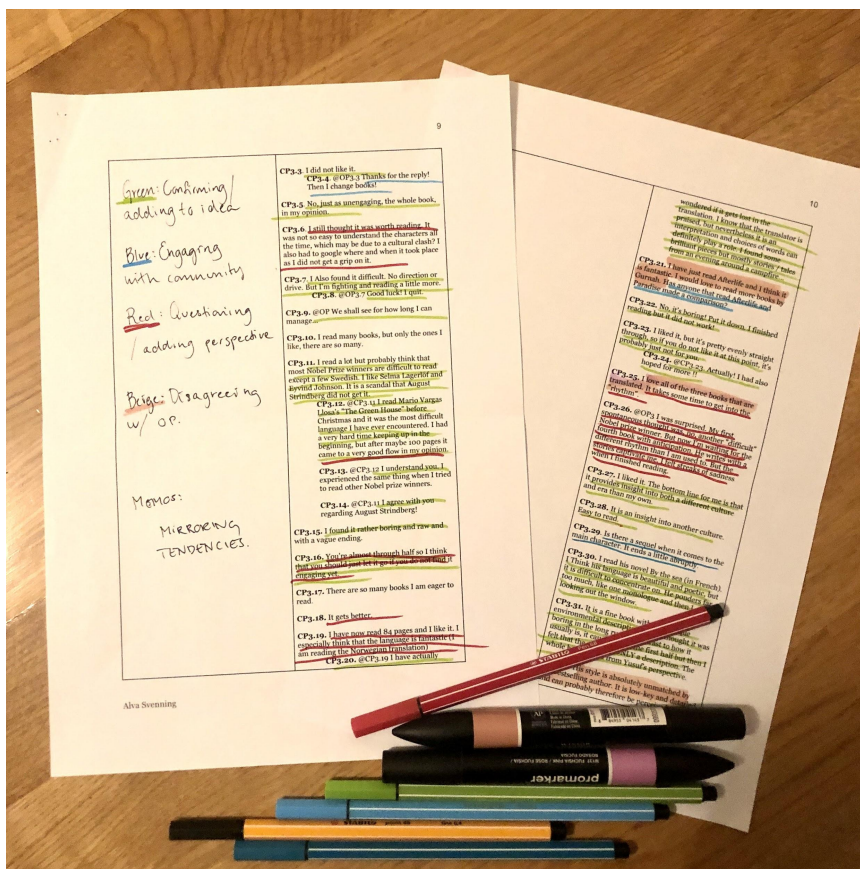 9
Green: Confirming/
adding to idea
Blue: Engaging
with community
Red: Questioning
/adding perspective
Beige: Disagreeing
w/ OP.
MEMOS:
MIRRORING
TENDENCIES.
CP3.3. I did not like it.
CP3.4. @OP3.3 Thanks for the reply!
Then I change books!
CP3.5 No, just as unengaging, the whole book,
in my opinion.
CP3.6. I still thought it was worth reading. It
was not so easy to understand the characters all
the time, which may be due to a cultural clash? I
also had to google where and when it took place
as I did not get a grip on it.
CP3.7. I Also found it difficult. No direction or
drive. But I'm fighting and reading a little more.
CP3.8. @OP3.7 Good luck! I quit.
CP3.9. @OP We shall see for how long I can
manage...
CP3.10. I read many books, but only the ones I
like, there are so many.
CP3.11. I read a lot but probably think that
most Nobel Prize winners are difficult to read
except a few Swedish. I like Selma Lagerlöf and
Eyvind Johnson. It is a scandal that August
Strindberg did not get it.
CP3.12. @CP3.11 I read Mario Vargas
Llosa's "The Green House" before
Christmas and it was the most difficult
language I have ever encountered. I had
a very hard time keeping up in the
beginning, but after maybe 100 pages it
came to a very good flow in my opinion.
CP3.13. @CP3.12 I understand you. I
experienced the same thing when I tried
to read other Nobel prize winners.
CP3.14. @CP3.11 I agree with you
regarding August Strindberg!
CP3.15. I found it rather boring and raw and
with a vague ending.
CP3.16. You're almost through half so I think
that you should just let it go if you do not find it
engaging yet.
CP3.17. There are so many books I am eager to
read.
CP3.18. It gets better.
CP3.19. I have now read 84 pages and I like it. I
especially think that the language is fantastic (I
am reading the Norwegian translation)
CP3.20. @CP3.19 I have actually
Alva Svenning
10
wondered if it gets lost in the
translation. I know that the translator is
praised, but nevertheless it is an
interpretation and choices of words can
definitely play a role. I found some
brilliant pieces but mostly stories / tales
from an evening around a campfire.
CP3.21. I have just read Afterlife and I think it
is fantastic. I would love to read more books by
Gurnah. Has anyone that read Afterlife and
Paradise made a comparison?
CP3.22. No, it's boring! Put it down. I finished
reading but it did not work!
CP3.23. I liked it, but it's pretty evenly straight
through, so if you do not like it at this point, it's
probably just not for you.
CP3.24. @CP3.23. Actually! I had also
hoped for more !!
CP3.25. I love all of the three books that are
translated. It takes some time to get into the
"rhythm"
CP3.26. @OP3 I was surprised. My first
spontaneous thought was: no, another "difficult"
Nobel prize winner. But now I'm waiting for the
fourth book with anticipation. He writes with a
different rhythm than I am used to. But the
stories captivate me. I felt streaks of sadness
when I finished reading.
CP3.27. I liked it. The bottom line for me is that
it provides insight into both a different culture
and era than my own.
CP3.28. It is an insight into another culture.
Easy to read.
CP3.29. Is there a sequel when it comes to the
main character. It ends a little abruptly
CP3.30. I read his novel By the sea (in French).
I think his language is beautiful and poetic, but
it is difficult to concentrate on. He ponders
too much, like one monologue and then
looking out the window.
CP3.31. It is a fine book with
environmental thought it was
boring in the long to how it
usually is, it first half but then I
felt that ONLY a description. The
whole from Yusuf's perspective.
His style is absolutely unmatched by
bestselling author. It is low-key and
and can probably therefore be
STABILO
AP
promarker